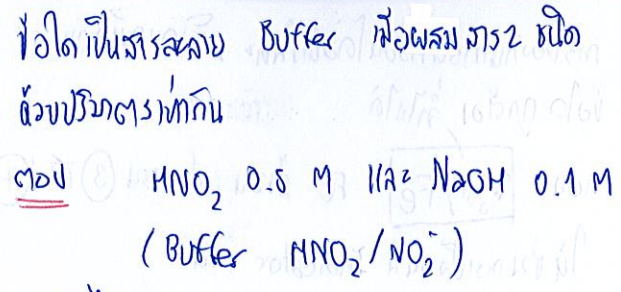 ข้อใดเป็นสารละลาย Buffer เมื่อผสมสาร 2 ชนิด
ด้วยปริมาตรเท่ากัน
ตอบ HNO₂ 0.5 M และ NaOH 0.1 M
(Buffer HNO₂/NO₂⁻)